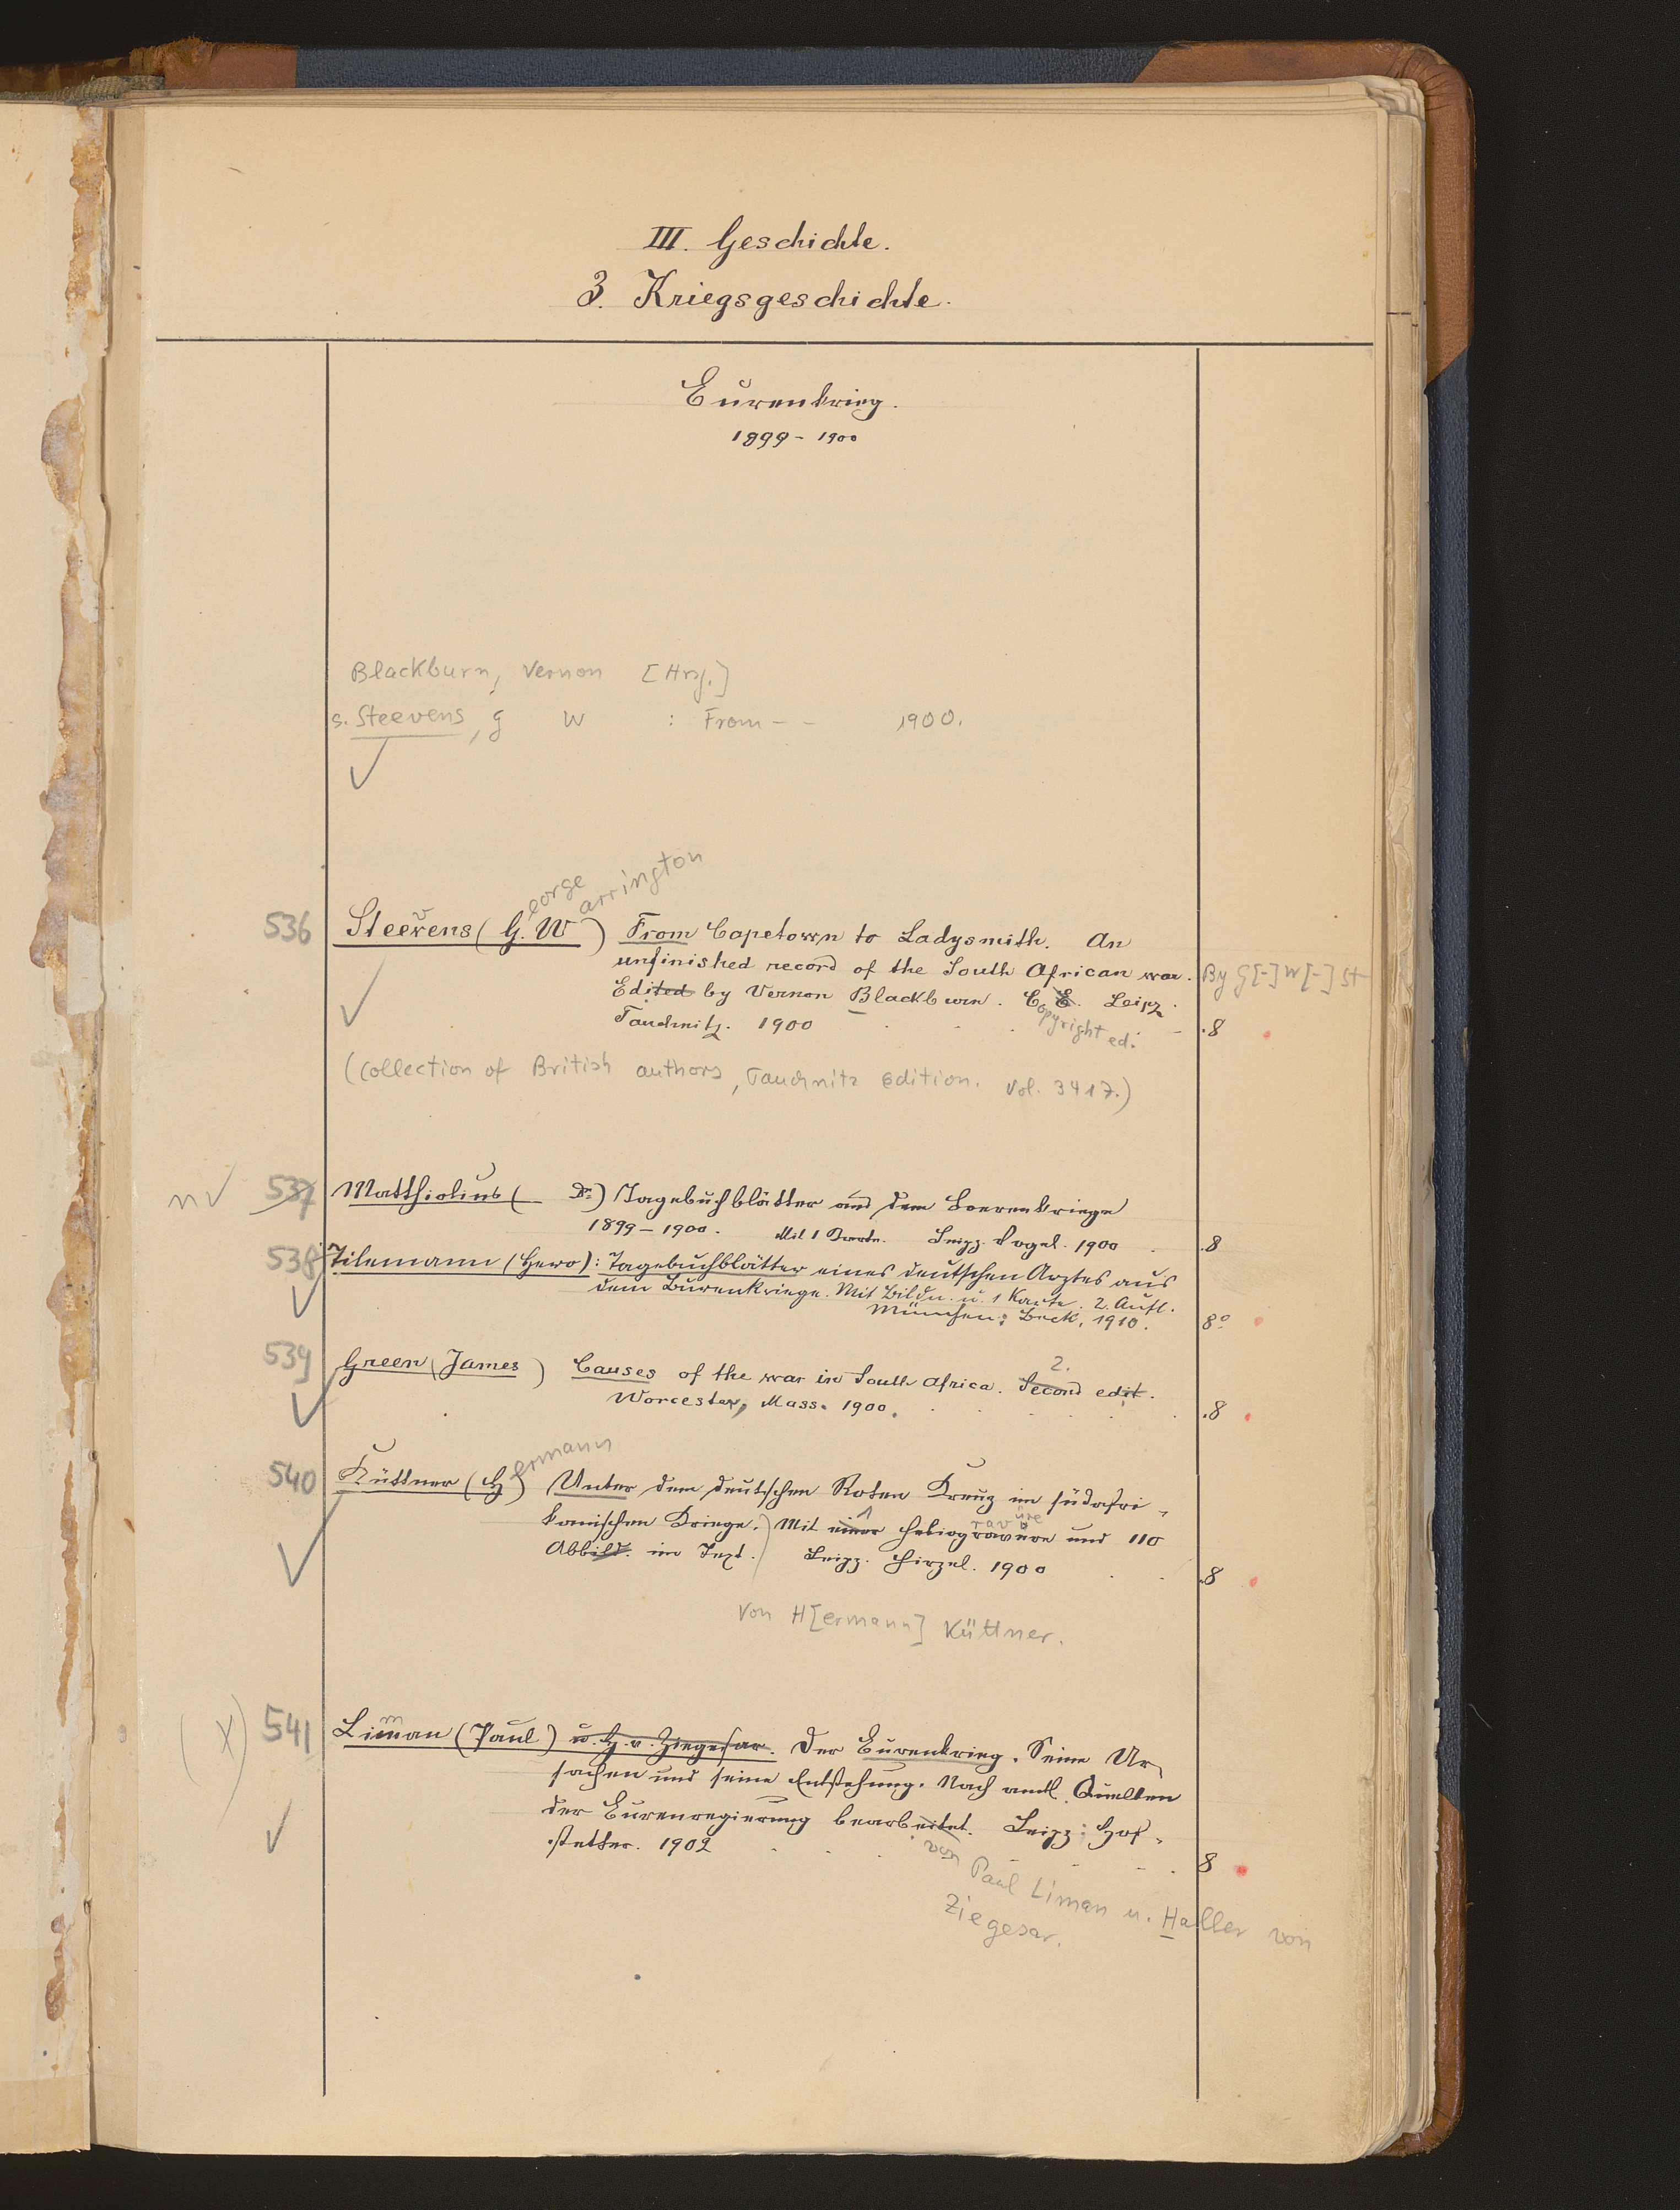 III. Geschichte.
3. Kriegsgeschichte.
Burenkrieg.
1899 - 1900
Blackburn, Vernon [Hrsg.]
s. Steevens, G W : From - - 1900.
536 Steevens (George Warrington) From Capetown to Ladysmith. An
unfinished record of the South African war. By G[-] W[-] St
Edited by Vernon Blackburn. C. E. Leipz.
Copyright ed.
Tauchnitz. 1900 8
(Collection of British authors, Tauchnitz edition. Vol. 3417.)
n 537 Matthiolius ( Dr.) Tagebuchblätter aus dem Boerenkriege
1899 - 1900. Mit 1 Karte. Leipz. Vogel. 1900 8
538 Tilemann (Hero): Tagebuchblätter eines deutschen Arztes aus
dem Burenkriege. Mit Bildn. u. 1 Karte. 2. Aufl.
München: Beck, 1910. 8°
539 Green (James) Causes of the war in South Africa. Second edit. 2.
Worcester, Mass. 1900. 8
540 Küttner (Hermann) Unter dem deutschen Roten Kreuz im südafri-
kanischen Kriege. Mit einer Heliogravüre und 110
Abbild. im Text. Leipz. Hirzel. 1900 8
Von H[ermann] Küttner.
(X) 541 Liman (Paul) u. H. v. Ziegesar. Der Burenkrieg. Seine Ur-
sachen und seine Entstehung. Nach amtl. Quellen
der Burenregierung bearbeitet. Leipz: Hof-
stetter. 1902 8
von Paul Liman u. Haller von
Ziegesar.